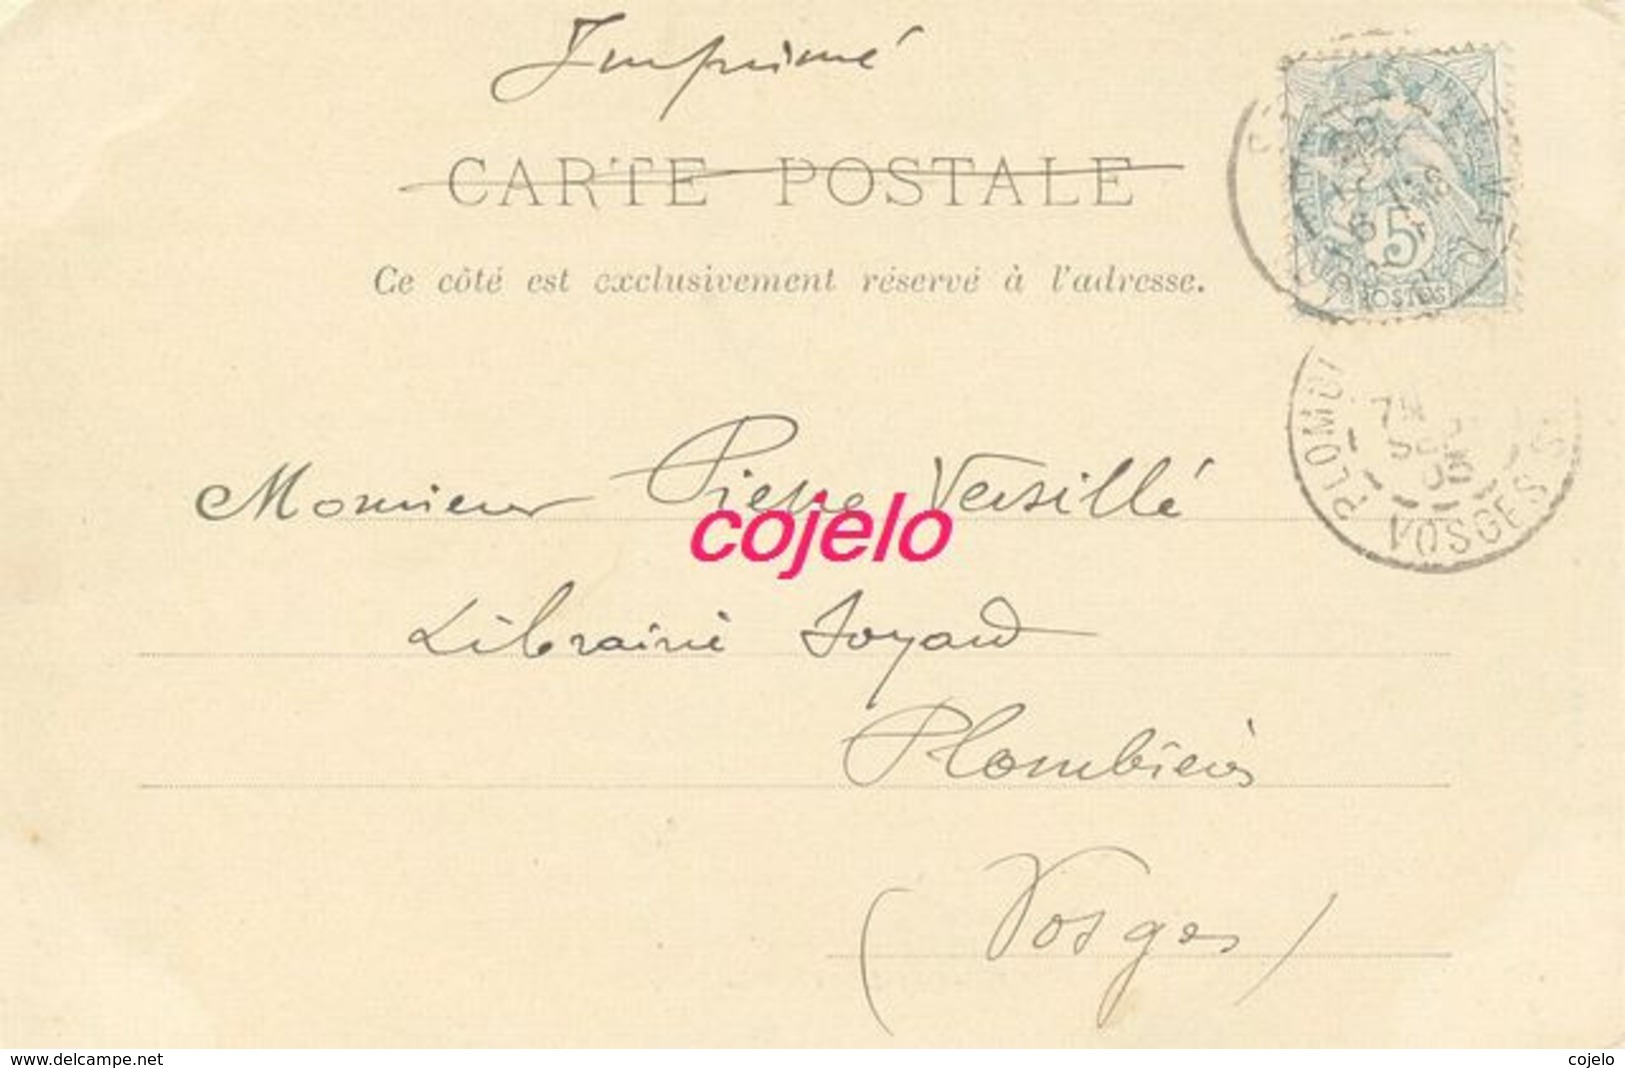 Imprimé
CARTE POSTALE
Ce côté est exclusivement réservé à l'adresse.
5
POSTES
PLOMBI
VOSGES
Monsieur Pierre Versillé
cojelo
Librairie
Plombières
(Vosges)
www.delcampe.net
cojelo